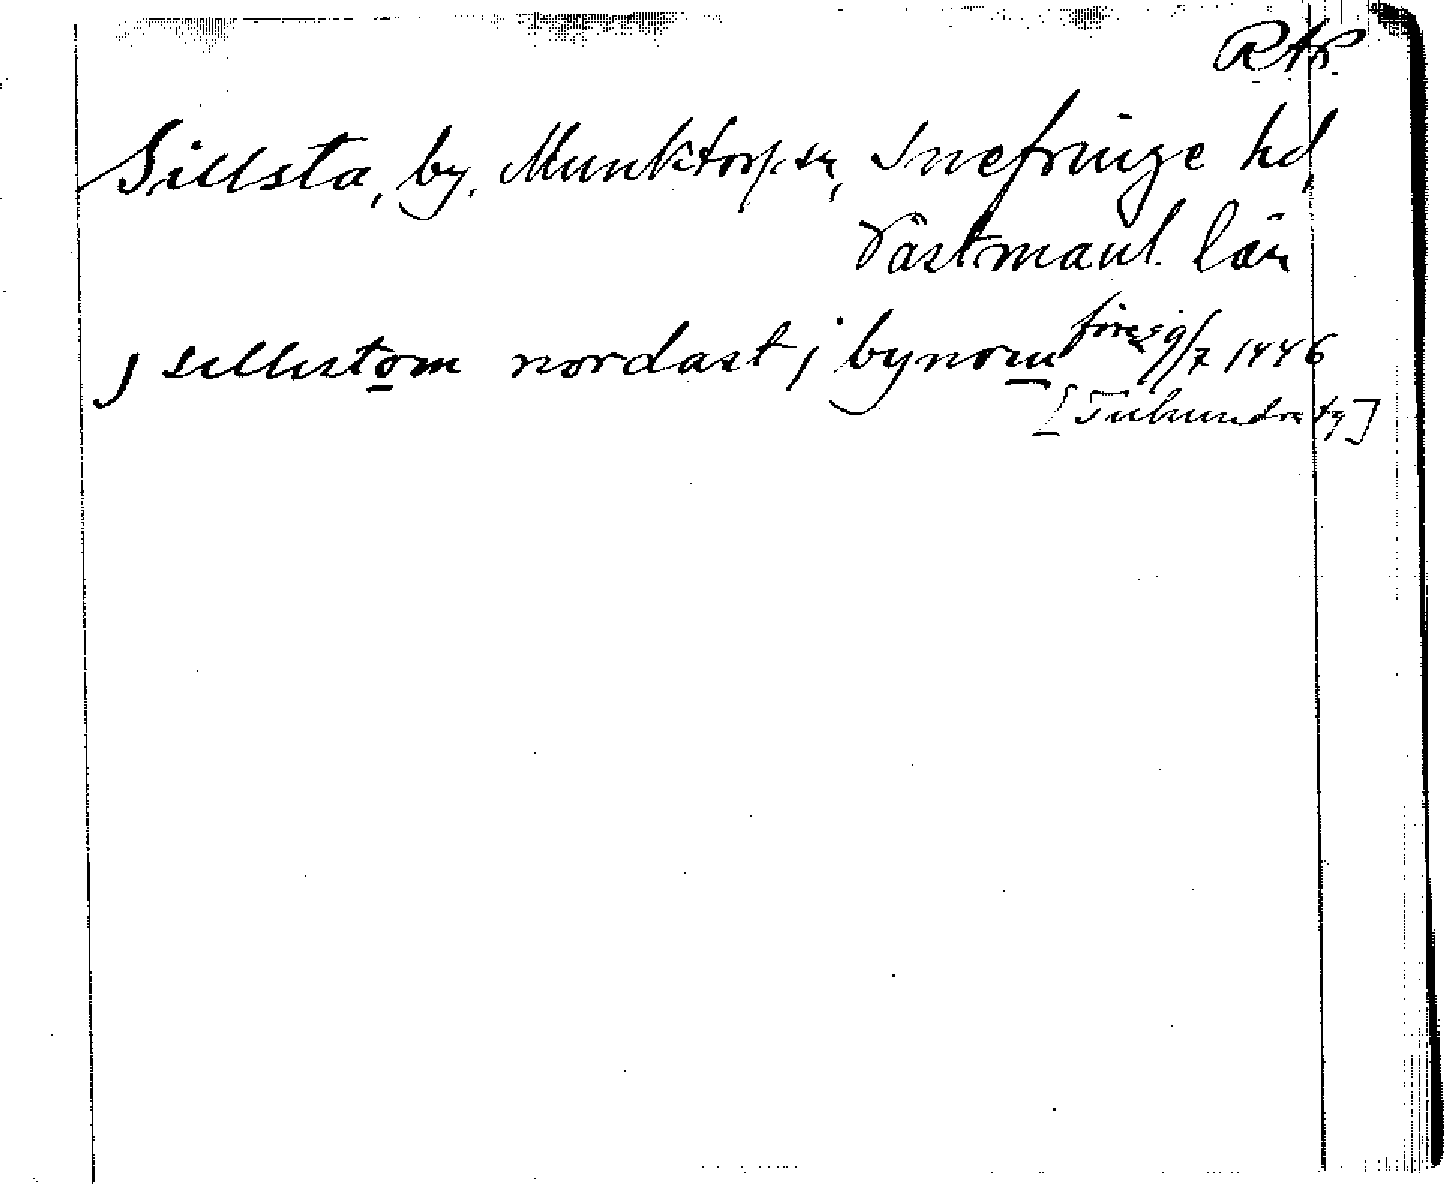 RAP.
Sillsta, by, Munktorps sn, Snefringe hd,
Västmanl. län
j sillistom nordast j bynom 9/7 1446
[Tuhundra tg]